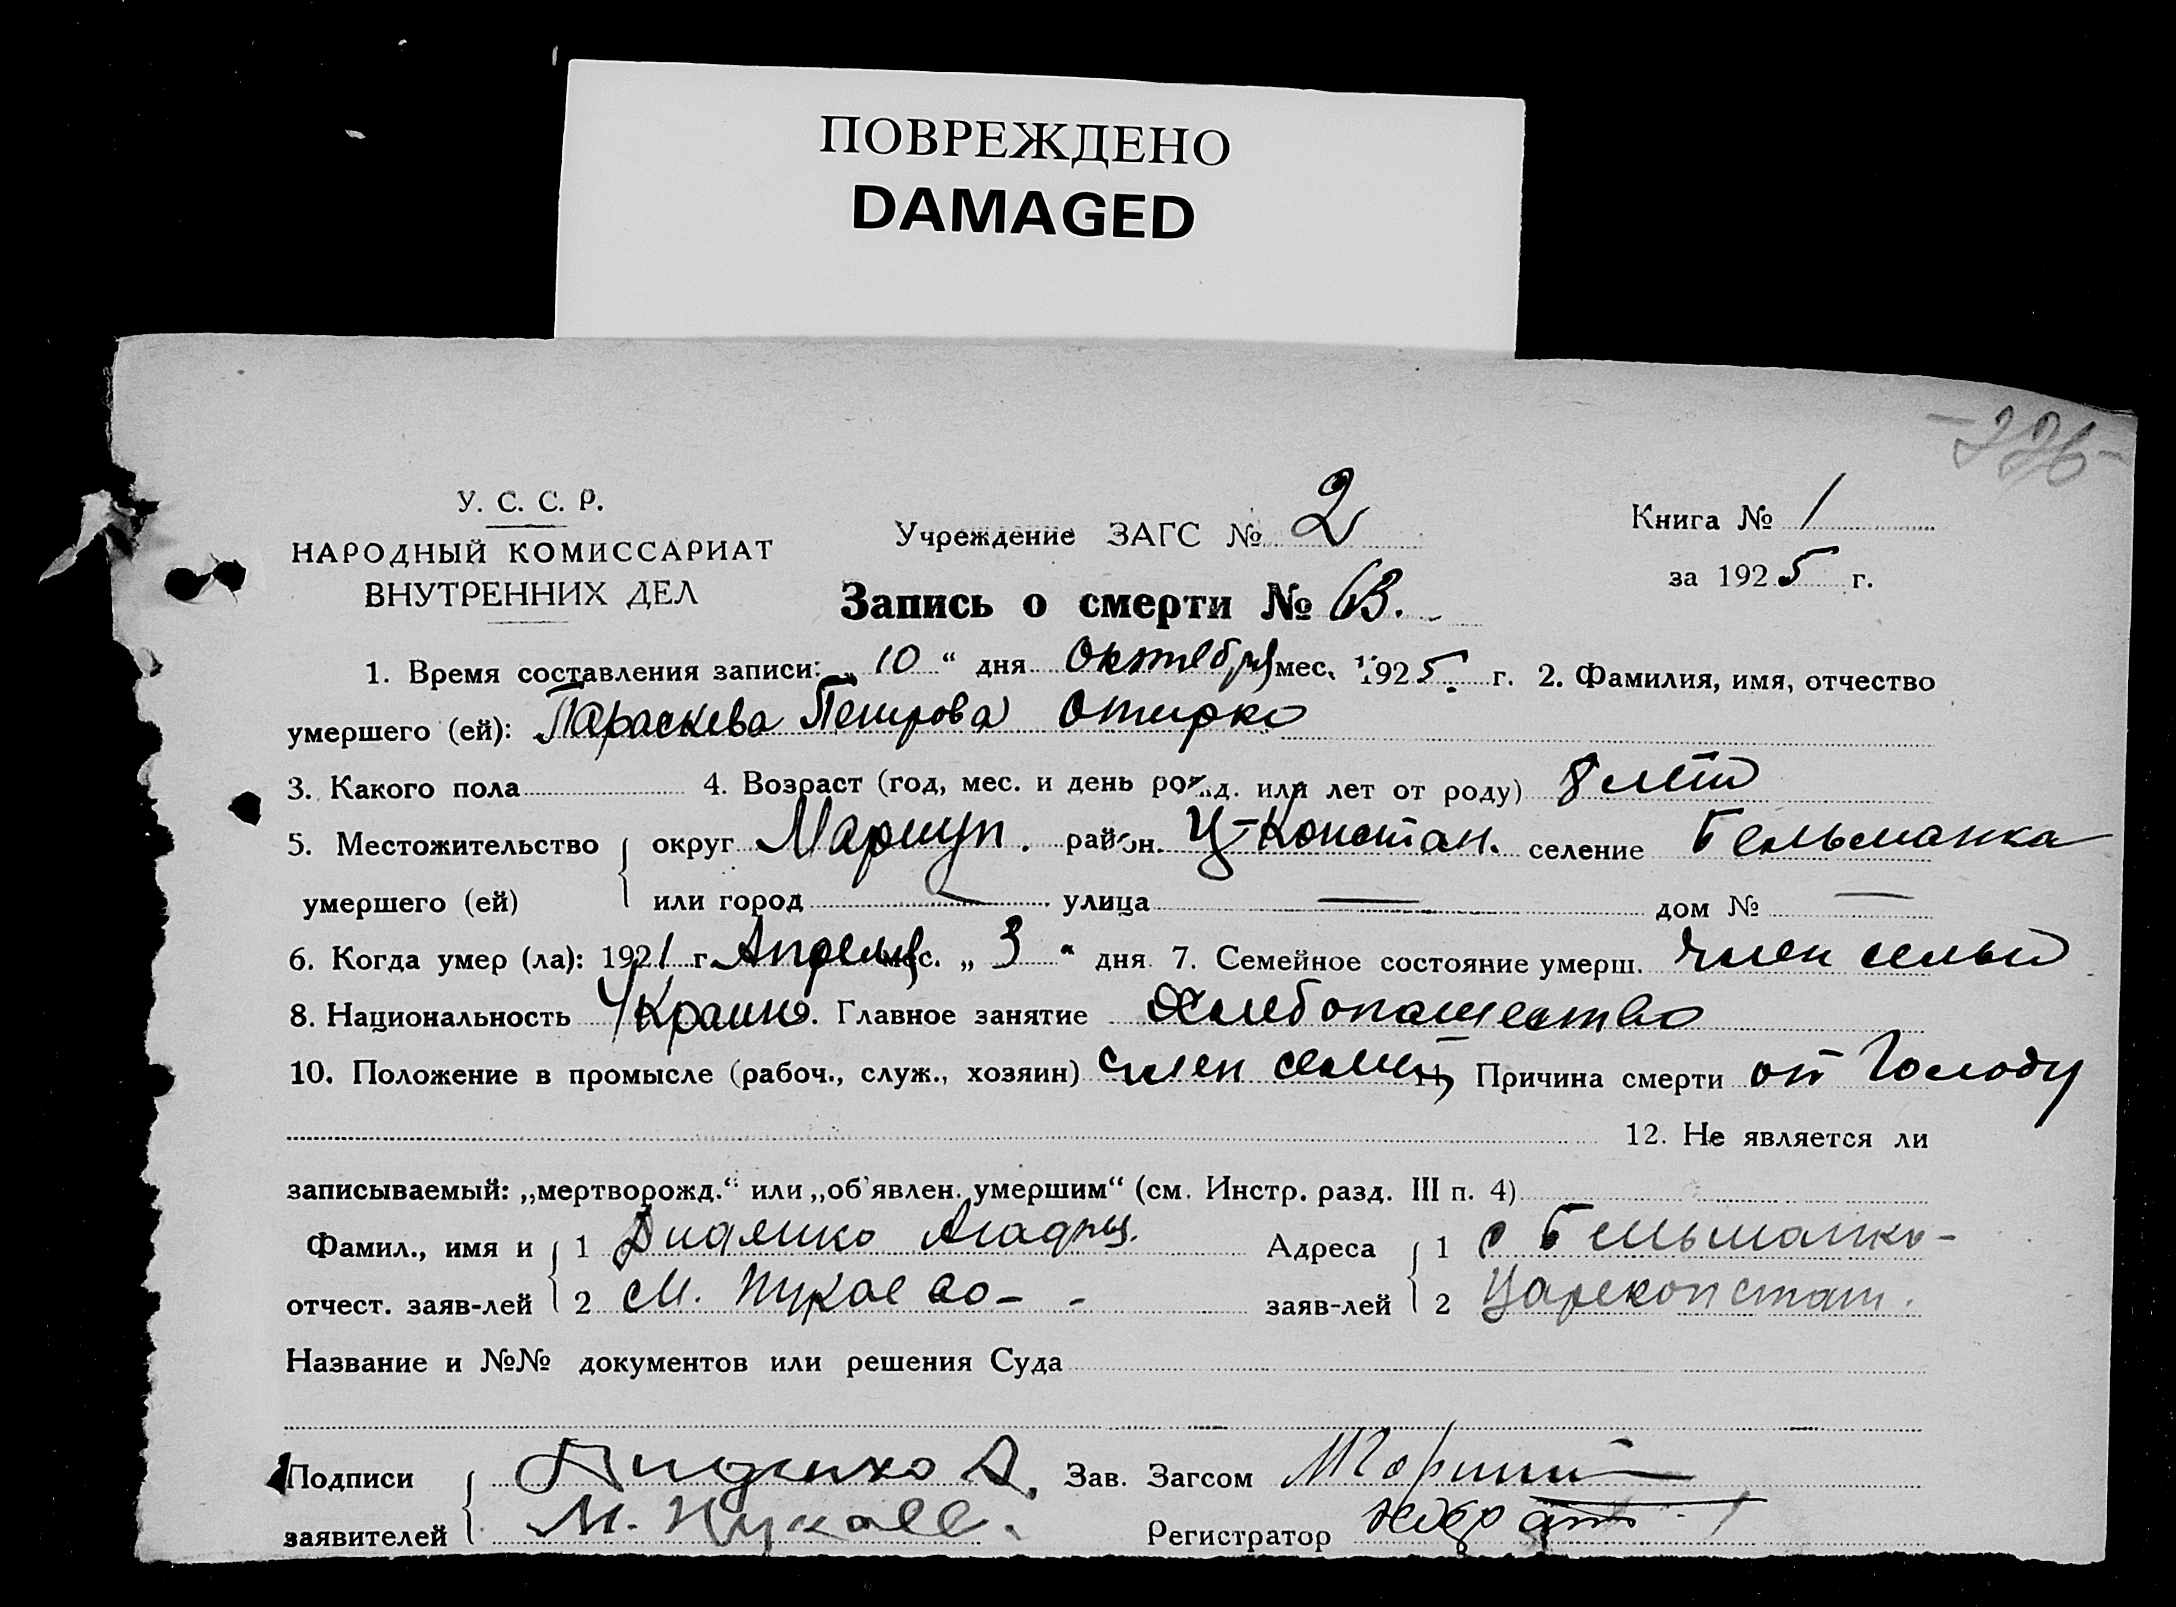 ПОВРЕЖДЕНО
DAMAGED
У. С. С. Р.
НАРОДНЫЙ КОМИССАРИАТ
ВНУТРЕННИХ ДЕЛ
Учреждение ЗАГС № 2
Книга № 1
за 1925 г.
Запись о смерти №
1. Время составления записи: „ 10 “ дня Октября мес. 1925. г. 2. Фамилия, имя, отчество
умершего (ей): Параскева Петрова Отирко
3. Какого пола 4. Возраст (год, мес. и день рожд. или лет от роду) 8 лет
5. Местожительство округ Мариуп. район. Ц-Констан. селение Бельманка
умершего (ей) или город — улица — дом № —
6. Когда умер (ла): 1921 г. Апреля мес. „ 3 “ дня 7. Семейное состояние умерш. член семьи
8. Национальность Украин. 9. Главное занятие Хлебопашество
10. Положение в промысле (рабоч., служ., хозяин) член семьи 11. Причина смерти от Голоду
12. Не является ли
записываемый: „мертворожд.“ или „об'явлен. умершим“ (см. Инстр. разд. III п. 4)
Фамил., имя и 1 Адреса 1 с Бельманка-
отчест. заяв-лей 2 М. заяв-лей 2 Цареконстан.
Название и №№ документов или решения Суда
Подписи Зав. Загсом
заявителей М. Регистратор